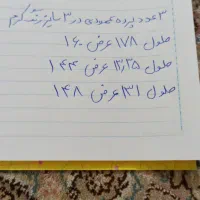 ۳ عدد پرده عمودی در ۳ سایز رنگ کرم
طول ۱۷۸ عرض ۱۶۰
طول ۲۳۵ عرض ۱۴۴
طول ۱۳۱ عرض ۱۴۸